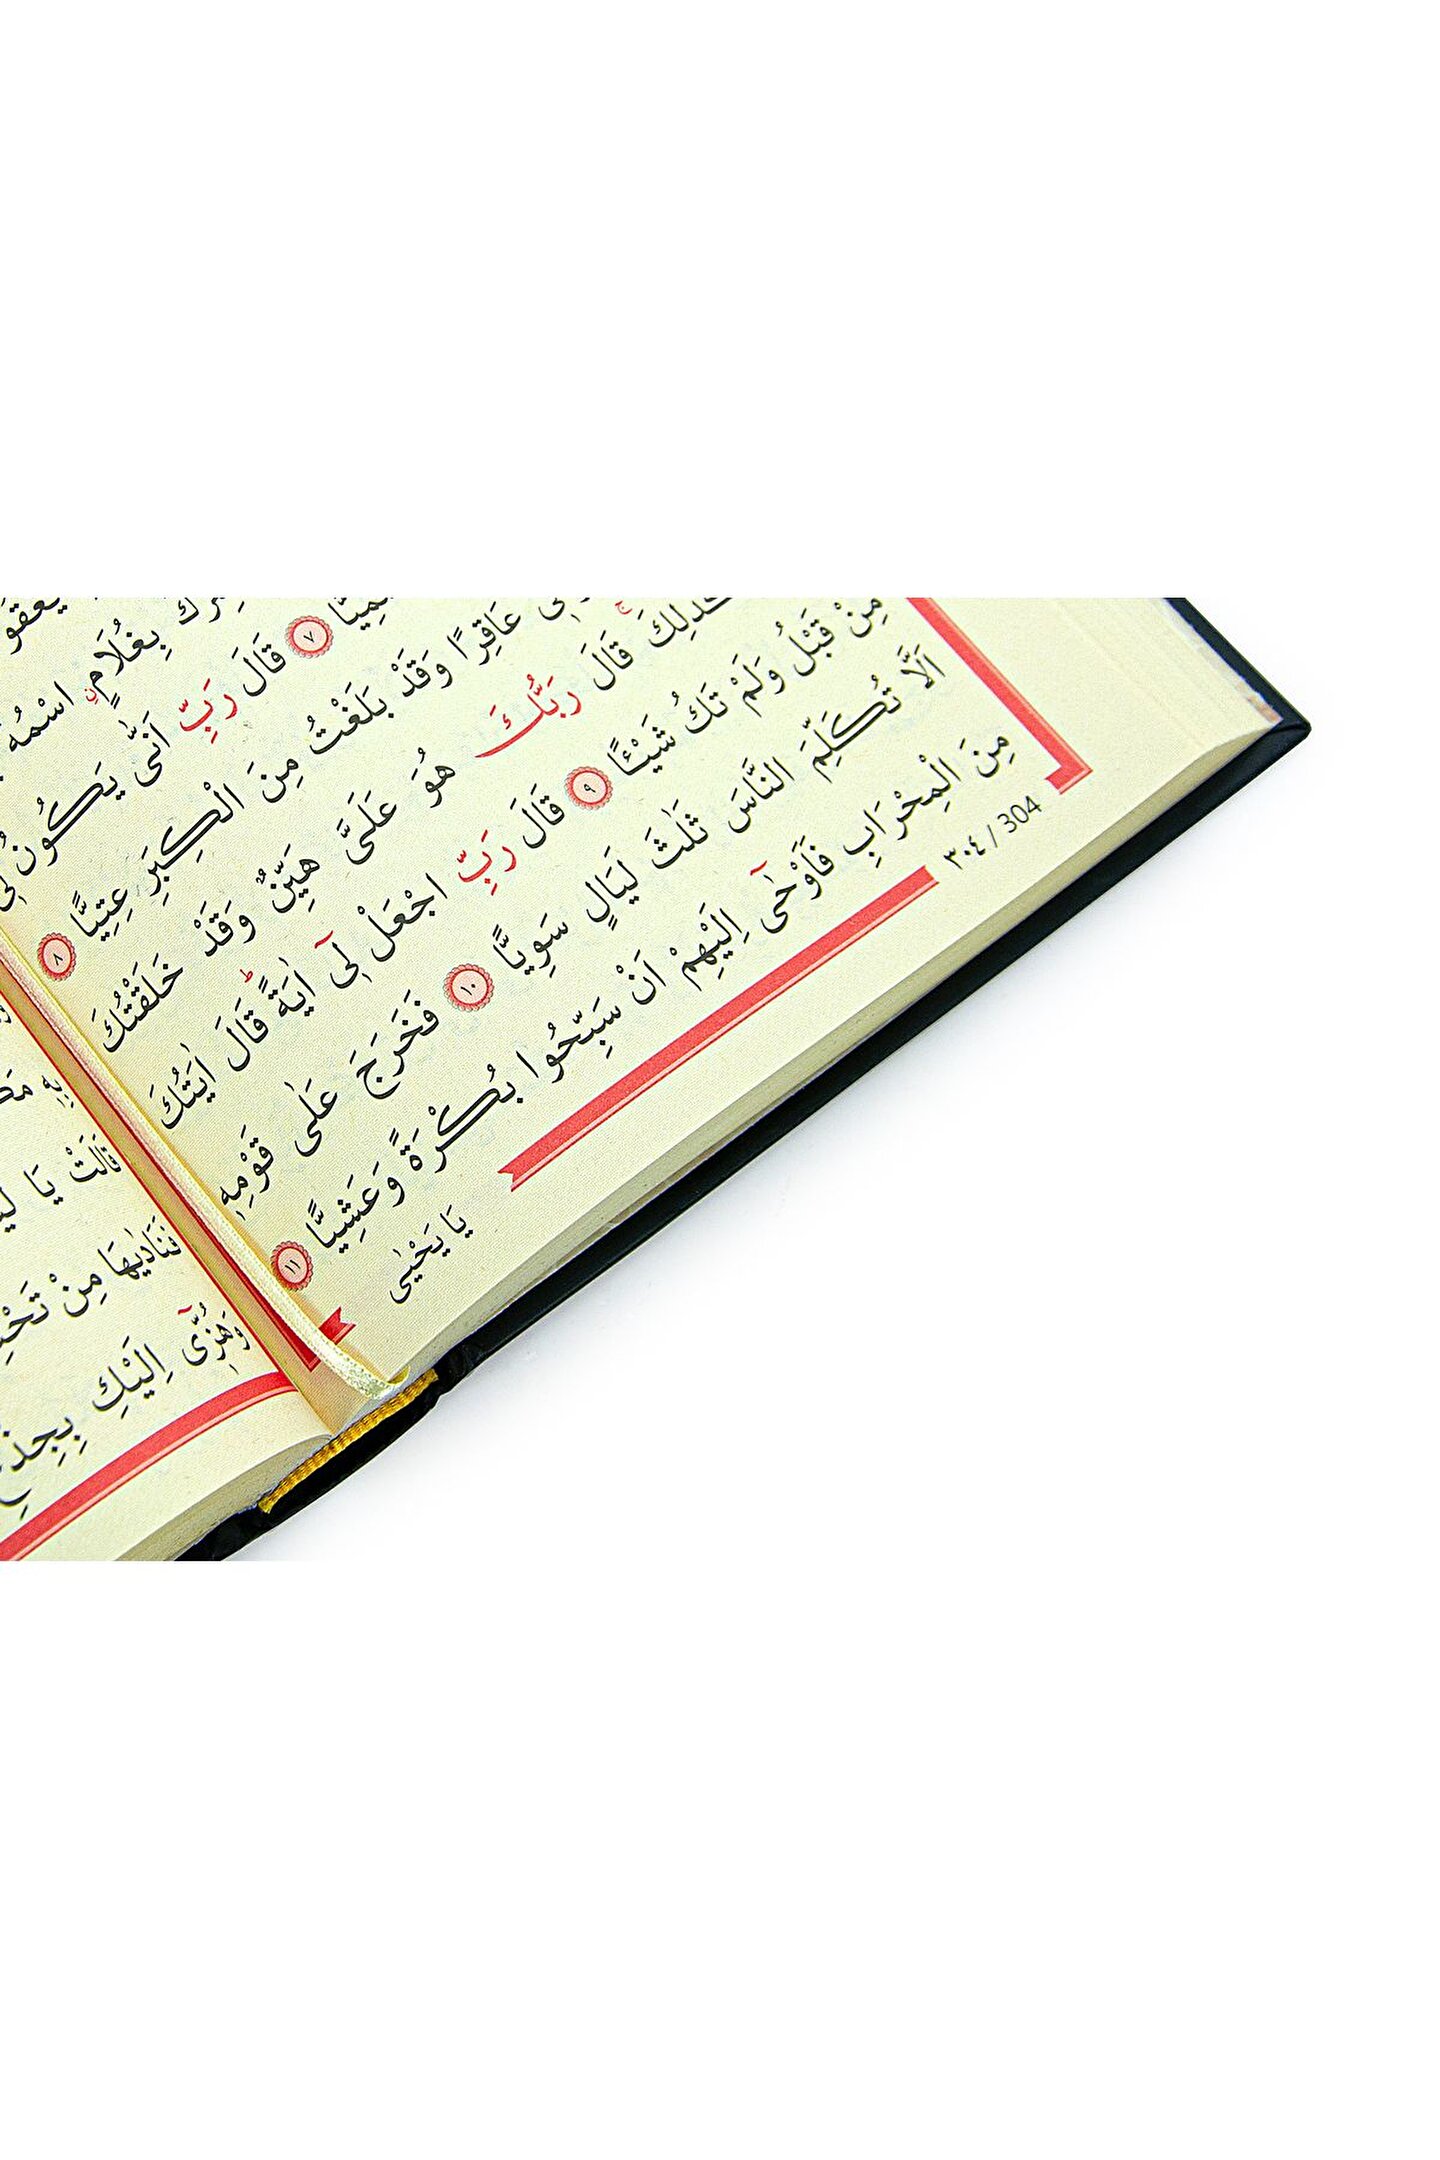 بِغُلَامٍ اسْمُهُ
٧ قَالَ رَبِّ اَنّٰى يَكُونُ لِى
عَاقِرًا وَقَدْ بَلَغْتُ مِنَ الْكِبَرِ عِتِيًّا ٨
كَذٰلِكَ قَالَ رَبُّكَ هُوَ عَلَىَّ هَيِّنٌ وَقَدْ خَلَقْتُكَ
مِنْ قَبْلُ وَلَمْ تَكُ شَيْـًٔا ٩ قَالَ رَبِّ اجْعَلْ لِىٓ اٰيَةًۜ قَالَ اٰيَتُكَ
اَلَّا تُكَلِّمَ النَّاسَ ثَلٰثَ لَيَالٍ سَوِيًّا ١٠ فَخَرَجَ عَلٰى قَوْمِهٖ
مِنَ الْمِحْرَابِ فَاَوْحٰٓى اِلَيْهِمْ اَنْ سَبِّحُوا بُكْرَةً وَعَشِيًّا ١١
٣٠٤ / 304
يَا يَحْيٰى
بِهٖ
قَالَتْ يَا
فَنَادٰيهَا مِنْ
وَهُزّٖٓى اِلَيْكِ بِجِذْعِ